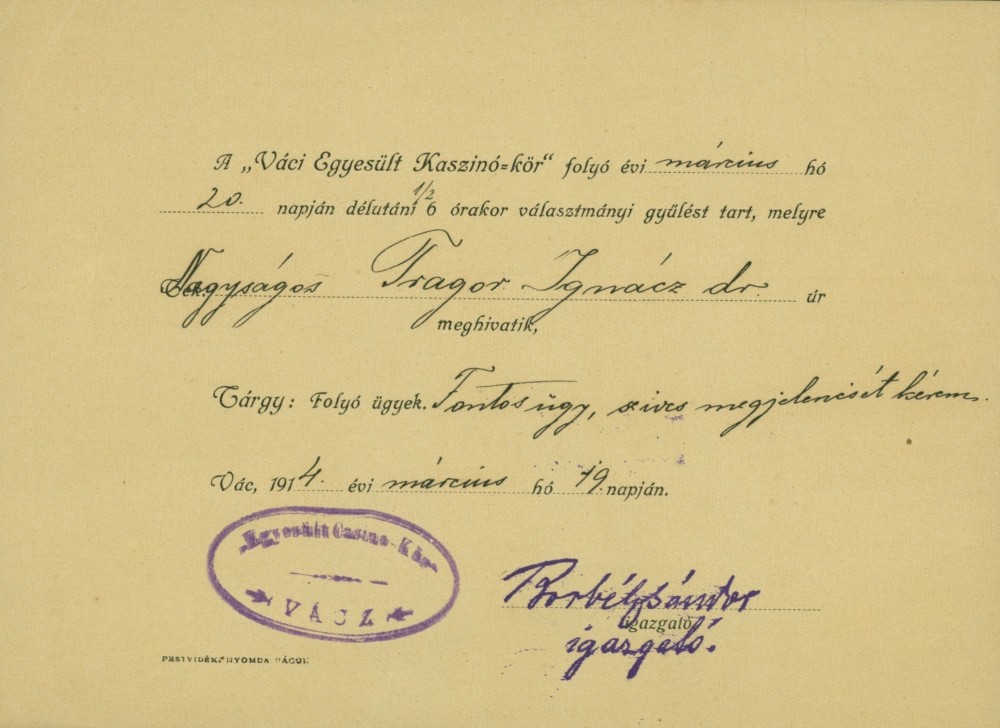 A „Váci Egyesült Kaszinó=kör“ folyó évi március hó
20. napján délutáni 1/2 6 órakor választmányi gyűlést tart, melyre
Nagyságos Tragor Ignácz dr. úr
meghivatik,
Tárgy: Folyó ügyek. Fontos ügy, szives megjelenését kérem.
Vác, 1914. évi március hó 19. napján.
„Egyesült Casino-Kör“
VÁCZ
Borbély Sándor
igazgató
igazgató.
PESTVIDÉKI NYOMDA VÁCON